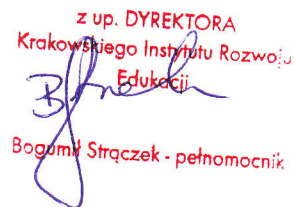 z up. DYREKTORA
Krakowskiego Instytutu Rozwoju
Edukacji
Bogumił Strączek - pełnomocnik